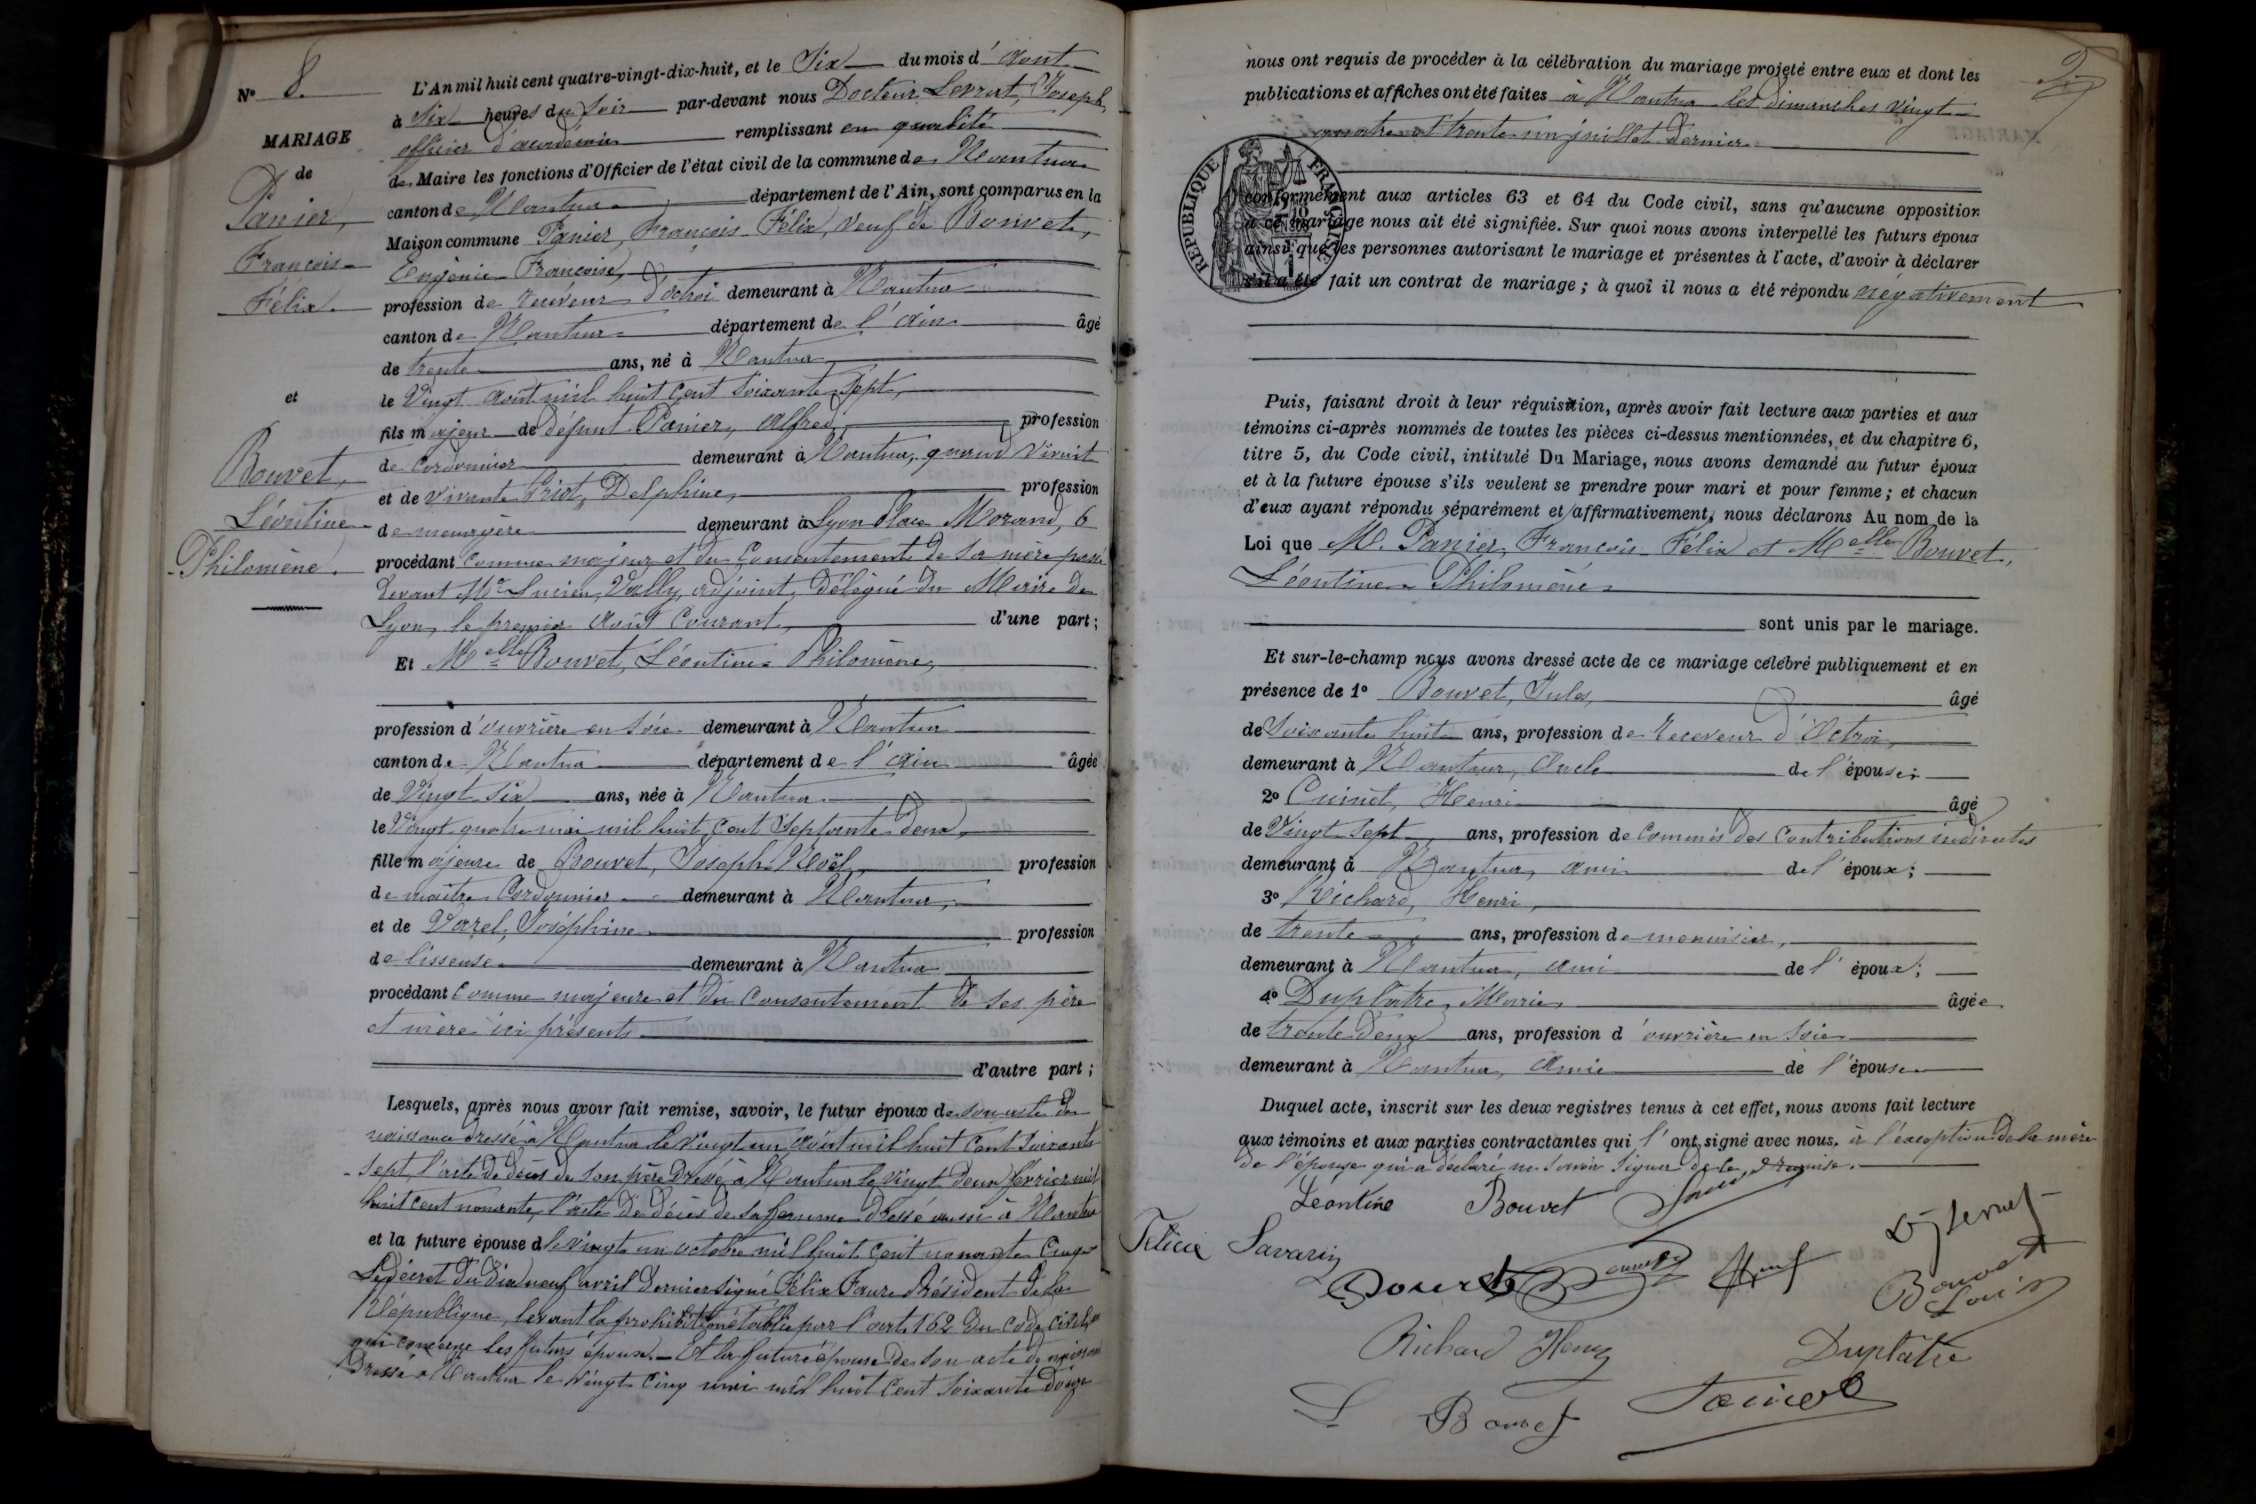 N° 8.
MARIAGE
de
Panier,
François
Félix.
et
Bouvet,
Léontine
Philomène.
L'An mil huit cent quatre-vingt-dix-huit, et le Six du mois d'Aout
à Six heures du Soir par-devant nous Docteur Levrat, Joseph,
officier d'académie remplissant en qualité
de Maire les fonctions d'Officier de l'état civil de la commune de Nantua
canton de Nantua département de l'Ain, sont comparus en la
Maison commune Panier, François Félix, veuf de Bouvet,
Eugénie Françoise,
profession de receveur d'octroi demeurant à Nantua
canton de Nantua département de l'Ain âgé
de trente ans, né à Nantua
le Vingt août mil huit cent soixante sept,
fils majeur de défunt Panier, Alfred, profession
de cordonnier demeurant à Nantua, quand vivait
et de vivante Griot, Delphine, profession
de menagère demeurant à Lyon place Morand, 6
procédant comme majeur et du consentement de sa mère passé
devant Mr Lucien Vally, adjoint, délégué du Maire de
Lyon, le premier Août courant, d'une part;
Et Melle Bouvet, Léontine Philomène,
profession d'ouvrière en soie demeurant à Nantua
canton de Nantua département de l'Ain âgée
de Vingt six ans, née à Nantua
le Vingt quatre mai mil huit cent septante deux,
fille majeure de Bouvet, Joseph Noël, profession
de maître Cordonnier demeurant à Nantua,
et de Varel, Joséphine profession
de lisseuse demeurant à Nantua
procédant comme majeure et du consentement de ses père
et mère ici présents
d'autre part;
Lesquels, après nous avoir fait remise, savoir, le futur époux de son acte de
naissance dressé à Nantua le vingt un août mil huit cent soixante
sept, l'acte de décès de son père dressé à Nantua le vingt deux février mil
huit cent nonante, l'acte de décès de sa femme dressé aussi à Nantua
et la future épouse d le vingt un octobre mil huit cent nonante cinq
Le décret du dix neuf avril dernier signé Félix Faure Président de la
République, levant la prohibition établie par l'art. 162 du code civil en ce
qui concerne les futurs époux. Et la future épouse de son acte de naissance
Dressé à Nantua le vingt cinq mai mil huit cent soixante douze
nous ont requis de procéder à la célébration du mariage projeté entre eux et dont les
publications et affiches ont été faites à Nantua les Dimanches vingt
quatre et trente un juillet dernier
RÉPUBLIQUE FRANÇAISE
conformément aux articles 63 et 64 du Code civil, sans qu'aucune opposition
à ce mariage nous ait été signifiée. Sur quoi nous avons interpellé les futurs époux
ainsi que les personnes autorisant le mariage et présentes à l'acte, d'avoir à déclarer
s'il a été fait un contrat de mariage; à quoi il nous a été répondu négativement
Puis, faisant droit à leur réquisition, après avoir fait lecture aux parties et aux
témoins ci-après nommés de toutes les pièces ci-dessus mentionnées, et du chapitre 6,
titre 5, du Code civil, intitulé Du Mariage, nous avons demandé au futur époux
et à la future épouse s'ils veulent se prendre pour mari et pour femme; et chacun
d'eux ayant répondu séparément et affirmativement, nous déclarons Au nom de la
Loi que M. Panier, François Félix et Melle Bouvet,
Léontine Philomène
sont unis par le mariage.
Et sur-le-champ nous avons dressé acte de ce mariage célébré publiquement et en
présence de 1° Bouvet, Jules, âgé
de Soixante huit ans, profession de Receveur d'Octroi,
demeurant à Nantua, Oncle de l'épouse;
2° Cuinet, Henri âgé
de Vingt sept ans, profession de Commis des Contributions indirectes
demeurant à Nantua, ami de l'époux;
3° Richard, Henri,
de trente ans, profession de menuisier,
demeurant à Nantua, ami de l'époux;
4° Duplatre, Marie, âgée
de trente deux ans, profession d'ouvrière en soie
demeurant à Nantua, Amie de l'épouse
Duquel acte, inscrit sur les deux registres tenus à cet effet, nous avons fait lecture
aux témoins et aux parties contractantes qui l'ont signé avec nous, à l'exception de la mère
de l'épouse qui a déclaré ne savoir signer de ce requise.
Léontine Bouvet
Félicie Savarin
Bouvet
Bouvet
Louis
Richard Henry
Duplatre
L Bouvet